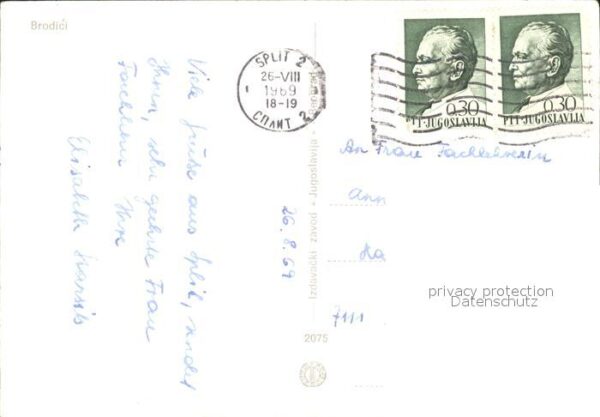 Brodići
Viele Grüße aus Split, sendet
Ihnen, sehr geehrte Frau
Fachlehrerin Ihre
Elisabeth
26.8.69
SPLIT 2
26-VIII
1969
18-19
СПЛИТ 2
Izdavački zavod • Jugoslavija • Beograd
2075
0.30
PTT-JUGOSLAVIJA
0.30
PTT-JUGOSLAVIJA
An Frau Fachlehrerin
Ann
Ha
7111
privacy protection
Datenschutz